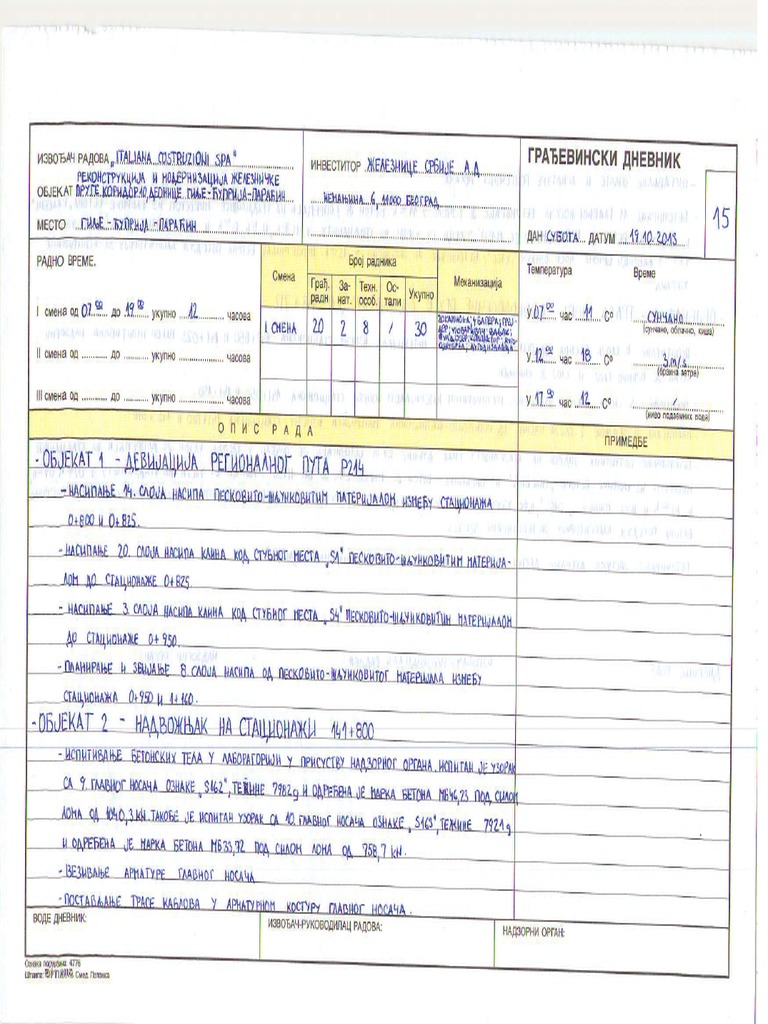 ИЗВОЂАЧ РАДОВА „ITALIANA COSTRUZIONI SPA“
РЕКОНСТРУКЦИЈА И МОДЕРНИЗАЦИЈА ЖЕЛЕЗНИЧКЕ
ОБЈЕКАТ ПРУГЕ, КОРИДОР 10 ДЕОНИЦЕ ГИЉЕ-ЋУПРИЈА-ПАРАЋИН
МЕСТО ГИЉЕ-ЋУПРИЈА-ПАРАЋИН
ИНВЕСТИТОР ЖЕЛЕЗНИЦЕ СРБИЈЕ А.Д
НЕМАЊИНА 6, 11000 БЕОГРАД
ГРАЂЕВИНСКИ ДНЕВНИК
15
ДАН СУБОТА ДАТУМ 19.10.2013
РАДНО ВРЕМЕ:
I смена од 07 00 до 19 00 укупно 12 часова
II смена од до укупно часова
III смена од до укупно часова
Смена
Број радника
Грађ. радн
За- нат.
Техн. особ.
Ос- тали
Укупно
Механизација
I СМЕНА 20 2 8 / 30
Температура Време
У 07 00 час 11 С° СУНЧАНО
(сунчано, облачно, киша)
У 12 00 час 18 С° 3 m/s
(брзина ветра)
У 17 30 час 12 С° /
(ниво подземних вода)
ОПИС РАДА
ПРИМЕДБЕ
- ОБЈЕКАТ 1 - ДЕВИЈАЦИЈА РЕГИОНАЛНОГ ПУТА Р214
- НАСИПАЊЕ 14. СЛОЈА НАСИПА ПЕСКОВИТО-ШЉУНКОВИТИМ МАТЕРИЈАЛОМ ИЗМЕЂУ СТАЦИОНАЖА
0+800 И 0+825.
- НАСИПАЊЕ 20. СЛОЈА НАСИПА КЛИНА КОД СТУБНОГ МЕСТА „S1“ ПЕСКОВИТО-ШЉУНКОВИТИМ МАТЕРИЈА-
ЛОМ ДО СТАЦИОНАЖЕ 0+825
- НАСИПАЊЕ 3. СЛОЈА НАСИПА КЛИНА КОД СТУБНОГ МЕСТА „S4“ ПЕСКОВИТО-ШЉУНКОВИТИМ МАТЕРИЈАЛОМ
ДО СТАЦИОНАЖЕ 0+950.
- ПЛАНИРАЊЕ И ЗБИЈАЊЕ 8. СЛОЈА НАСИПА ОД ПЕСКОВИТО-ШЉУНКОВИТОГ МАТЕРИЈАЛА ИЗМЕЂУ
СТАЦИОНАЖА 0+950 И 1+160.
- ОБЈЕКАТ 2 - НАДВОЖЊАК НА СТАЦИОНАЖИ 141+800
- ИСПИТИВАЊЕ БЕТОНСКИХ ТЕЛА У ЛАБОРАТОРИЈИ У ПРИСУСТВУ НАДЗОРНОГ ОРГАНА. ИСПИТАН ЈЕ УЗОРАК
СА 9. ГЛАВНОГ НОСАЧА ОЗНАКЕ „S162“, ТЕЖИНЕ 7982g И ОДРЕЂЕНА ЈЕ МАРКА БЕТОНА МБ46,23 ПОД СИЛОМ
ЛОМА ОД 1040,3 KN. ТАКОЂЕ ЈЕ ИСПИТАН УЗОРАК СА 10. ГЛАВНОГ НОСАЧА ОЗНАКЕ „S163“, ТЕЖИНЕ 7921g
И ОДРЕЂЕНА ЈЕ МАРКА БЕТОНА МБ33,72 ПОД СИЛОМ ЛОМА ОД 758,7 KN.
- ВЕЗИВАЊЕ АРМАТУРЕ ГЛАВНОГ НОСАЧА
- ПОСТАВЉАЊЕ ТРАСЕ КАБЛОВА У АРМАТУРНОМ КОСТУРУ ГЛАВНОГ НОСАЧА.
ВОДЕ ДНЕВНИК:
ИЗВОЂАЧ-РУКОВОДИЛАЦ РАДОВА:
НАДЗОРНИ ОРГАН:
Ознака поруџбине: 4776
Смед. Паланка